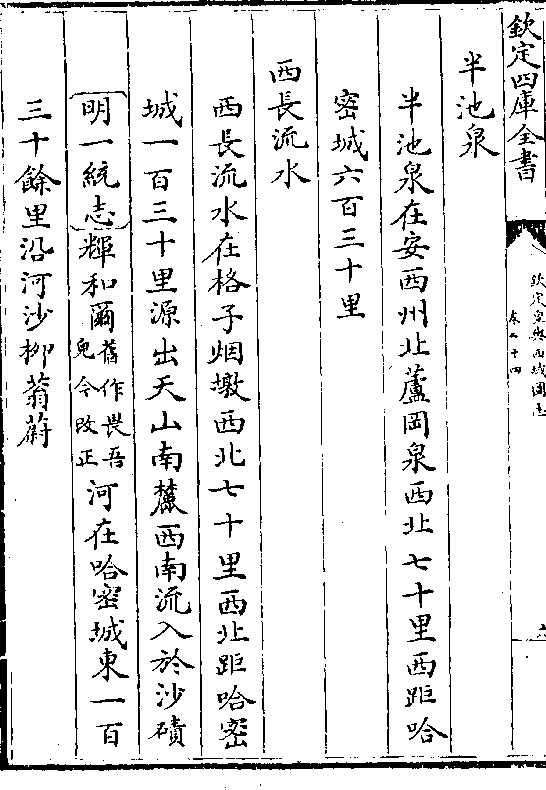 欽定四庫全書
欽定皇輿西域圖志
卷二十四
半池泉
半池泉在安西州北蘆岡泉西北七十里西距哈
密城六百三十里
西長流水
西長流水在格子烟墩西北七十里西北距哈密
城一百三十里源出天山南麓西南流入於沙磧
明一統志輝和爾舊作畏吾兒今改正河在哈密城東一百
三十餘里沿河沙柳蓊蔚